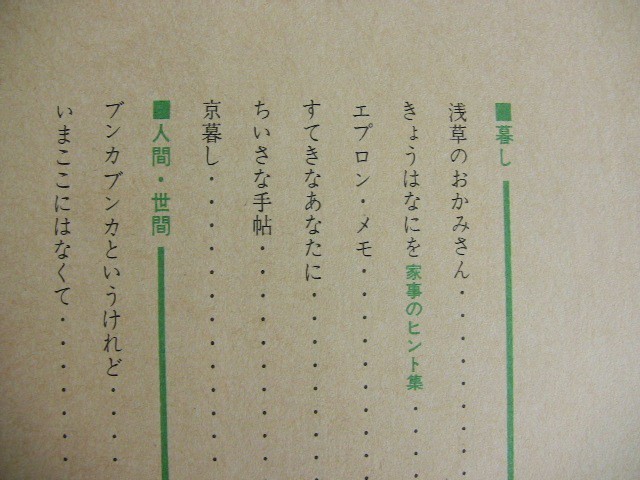 ■暮し
浅草のおかみさん・・・・・・・・
きょうはなにを 家事のヒント集・・・・
エプロン・メモ・・・・・・・・・
すてきなあなたに・・・・・・・・
ちいさな手帖・・・・・・・・・・
京暮し・・・・・・・・・・・・・
■人間・世間
ブンカブンカというけれど・・・・
いまここにはなくて・・・・・・・